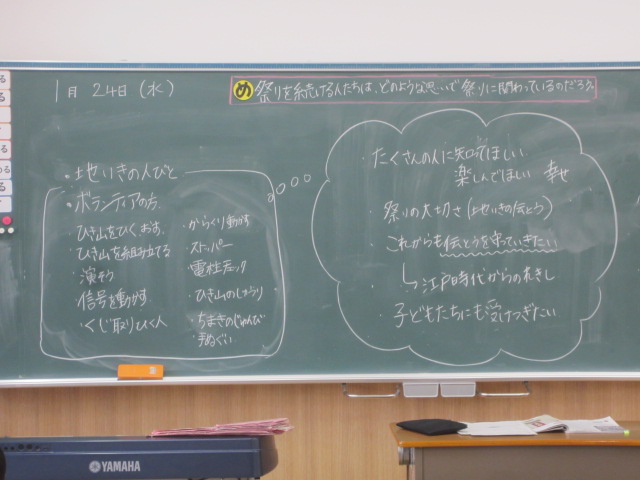 1月 24日 (水)
め 祭りを続ける人たちは、どのような思いで祭りに関わっているのだろう。
・地いきの人びと
・ボランティアの方
・ひき山をひく、おす。
・ひき山を組み立てる
・演そう
・信号を動かす
・くじ取り 引く人
・からくり動かす
・ストッパー
・電柱チェック
・ひき山のしゅうり
・ちまきのじゅんび
・手ぬぐい
・たくさんの人に知ってほしい
楽しんでほしい 幸せ
・祭りの大切さ(地いきの伝とう)
・これからも伝とうを守っていきたい
江戸時代からのれきし
・子どもたちにも受けつぎたい
YAMAHA